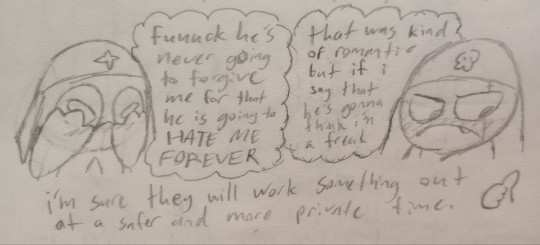 fuuuck he's
never going
to forgive
me for that
he is going to
HATE ME
FOREVER
that was kind
of romantic
but if i
say that
he's gonna
think i'm
a freak
i'm sure they will work something out
at a safer and more private time.